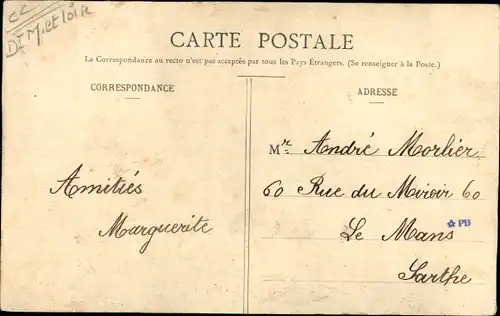 CC
Dt M. et Loire
CARTE POSTALE
La Correspondance au recto n'est pas acceptée par tous les Pays Étrangers. (Se renseigner à la Poste.)
CORRESPONDANCE
ADRESSE
Mr. André Morlier
60 Rue du Miroir 60
Le Mans
PB
Sarthe
Amitiés
Marguerite